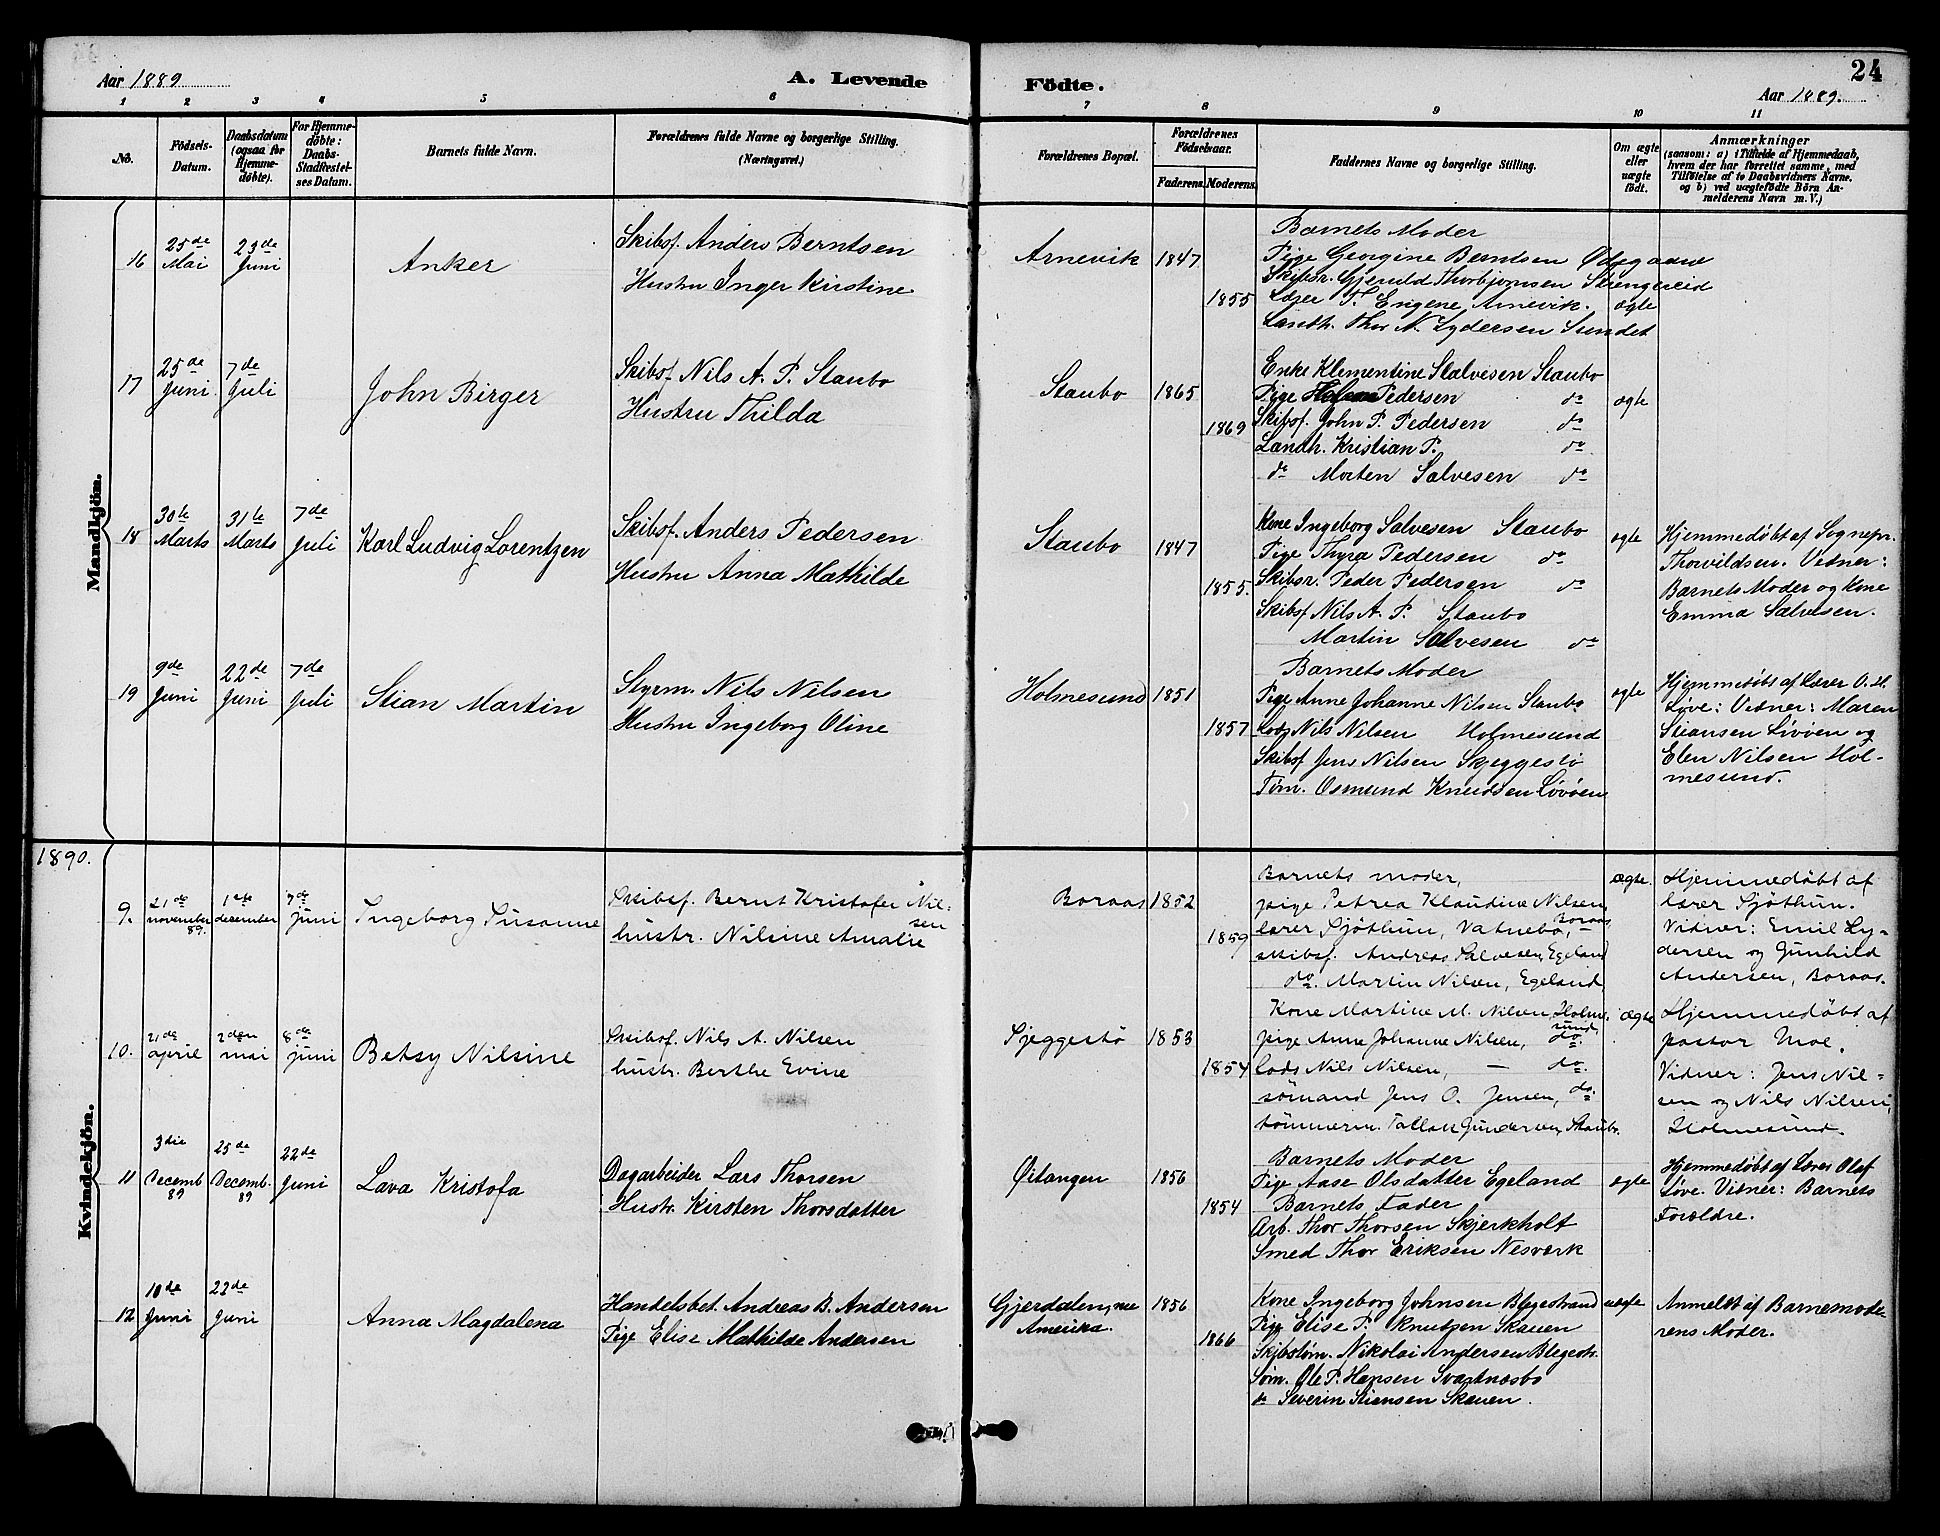 24
Aar 1889
A. Levende Födte.
Aar 1889.
1 2 3 4 5 6 7 8 9 10 11
No.
Födsels-Datum.
Daabsdatum (ogsaa for Hjemme-döbte).
For Hjemme-döbte: Daabs-Stadfæstel-ses Datum.
Barnets fulde Navn.
Forældrenes fulde Navne og borgerlige Stilling. (Næringsvei.)
Forældrenes Bopæl.
Forældrenes Födselsaar.
Faderens. Moderens.
Faddernes Navne og borgerlige Stilling.
Om ægte eller uægte födt.
Anmærkninger
(saasom: a) i Tilfælde af Hjemmedaab, hvem der har forrettet samme, med Tilföielse af to Daabsvidners Navne, og b) ved uægtefödte Börn An-melderens Navn m. V.)
Mandkjön.
16
25de Mai
23de Juni
Anker
Skibsf. Anders Berntsen
Hustru Inger Kirstine
Arnevik
1847
1855
Barnets Moder
Pige Georgine Berntsen Ødegaard
Skibsr. Gjeruld Thorbjørnsen Strengereid
Lærer T. Engene Arnevik.
Landh. Thor N. Lydersen Sundet
ægte
17
25de Juni.
7de Juli
John Birger
Skibsf. Nils A. P. Staubo
Hustru Thilda
Staubo
1865
1869
Enke Klementine Salvesen Staubo
Pige Pedersen do
Skibsf. John P. Pedersen do
Landh. Kristian P. do
do Morten Salvesen do
ægte
18
30te Marts
31te Marts
7de Juli
Karl Ludvig Lorentzen
Skibsf. Anders Pedersen
Hustru Anna Mathilde
Staubo
1847
1855.
Kone Ingeborg Salvesen Staubo
Pige Thyra Pedersen do
Skibsr. Peder Pedersen do
Skibsf Nils A. P. Staubo
Martin Salvesen do
ægte
Hjemmedøbt af Sognepr.
Thorvildsen. Vidner:
Barnets Moder og Kone
Emma Salvesen.
19
9de Juni
22de Juni
7de Juli
Stian Martin
Styrm. Nils Nilsen
Hustru Ingeborg Oline
Holmesund
1851
1857
Barnets Moder
Pige Anne Johanne Nilsen Staubo
Lods Nils Nilsen Holmesund
Skibsf Jens Nilsen Skjeggestø
Tøm. Osmund Knudsen Løvøen
ægte
Hjemmedøbt af Lærer O. H.
Løve: Vidner: Maren
Stiansen Løvøen og
Elen Nilsen Hol-
mesund.
1890.
Kvindekjön.
9.
21de november 89.
1ste desember
7de juni
Ingeborg Susanne
Skibsf. Bernt Kristofer Nil-
sen
hustr. Nilsine Amalie
Boraas
1852
1859
Barnets moder,
pige Petrea Klaudine Nilsen,
Boraas
lærer Sjöthun, Vatnebo,
skibsf. Andreas Salvesen, Egeland
do. Martin Nilsen, Egeland,
ægte.
Hjemmedöbt af
lærer Sjöthun.
Vidner: Emil Ly-
dersen og Gunhild
Andersen, Boraas.
10.
21de april
2den mai
8de juni
Betsy Nilsine
Skibsf. Nils A. Nilsen
hustr. Berthe Evine
Sjeggestö
1853
1854
Kone Martine M. Nilsen, Holme-
sund,
pige Anne Johanne Nilsen, do.
Lods Nils Nilsen, — do.
sömand Jens O. Jensen, do.
tömmerm. Tallak Gundersen, Staubo.
ægte
Hjemmedöbt af
pastor Moe.
Vidner: Jens Nil-
sen og Nils Nilsen,
Holmesund.
11
3die Decemb 89
25de Decemb. 89
22de Juni
Lava Kristofa
Dagarbeider Lars Thorsen
Hustr. Kirsten Thorsdatter
Øilangen
1856
1854
Barnets Moder
Pige Aase Olsdatter Egeland
Barnets Fader
Arb. Thor Thorsen Skjerkholt
Smed Thor Eriksen Nesverk
ægte
Hjemmedøbt af Lærer Olaf
Løve. Vidner: Barnets
Forældre.
12
10de Juni
22de Juni
Anna Magdalena
Handelsbet. Andreas B. Andersen
Pige Elise Mathilde Andersen
Gjerdalen, nu
Amerika.
1856
1866
Kone Ingeborg Johnsen Blegestrand
Pige Elise P. Knutsen Skauen
Skibstøm. Nikolai Andersen Blegestr.
Søm. Ole P. Hansen Svartnæsbo
do Severin Stiansen Skauen.
uægte
Anmeldt af Barnemode-
rens Moder.